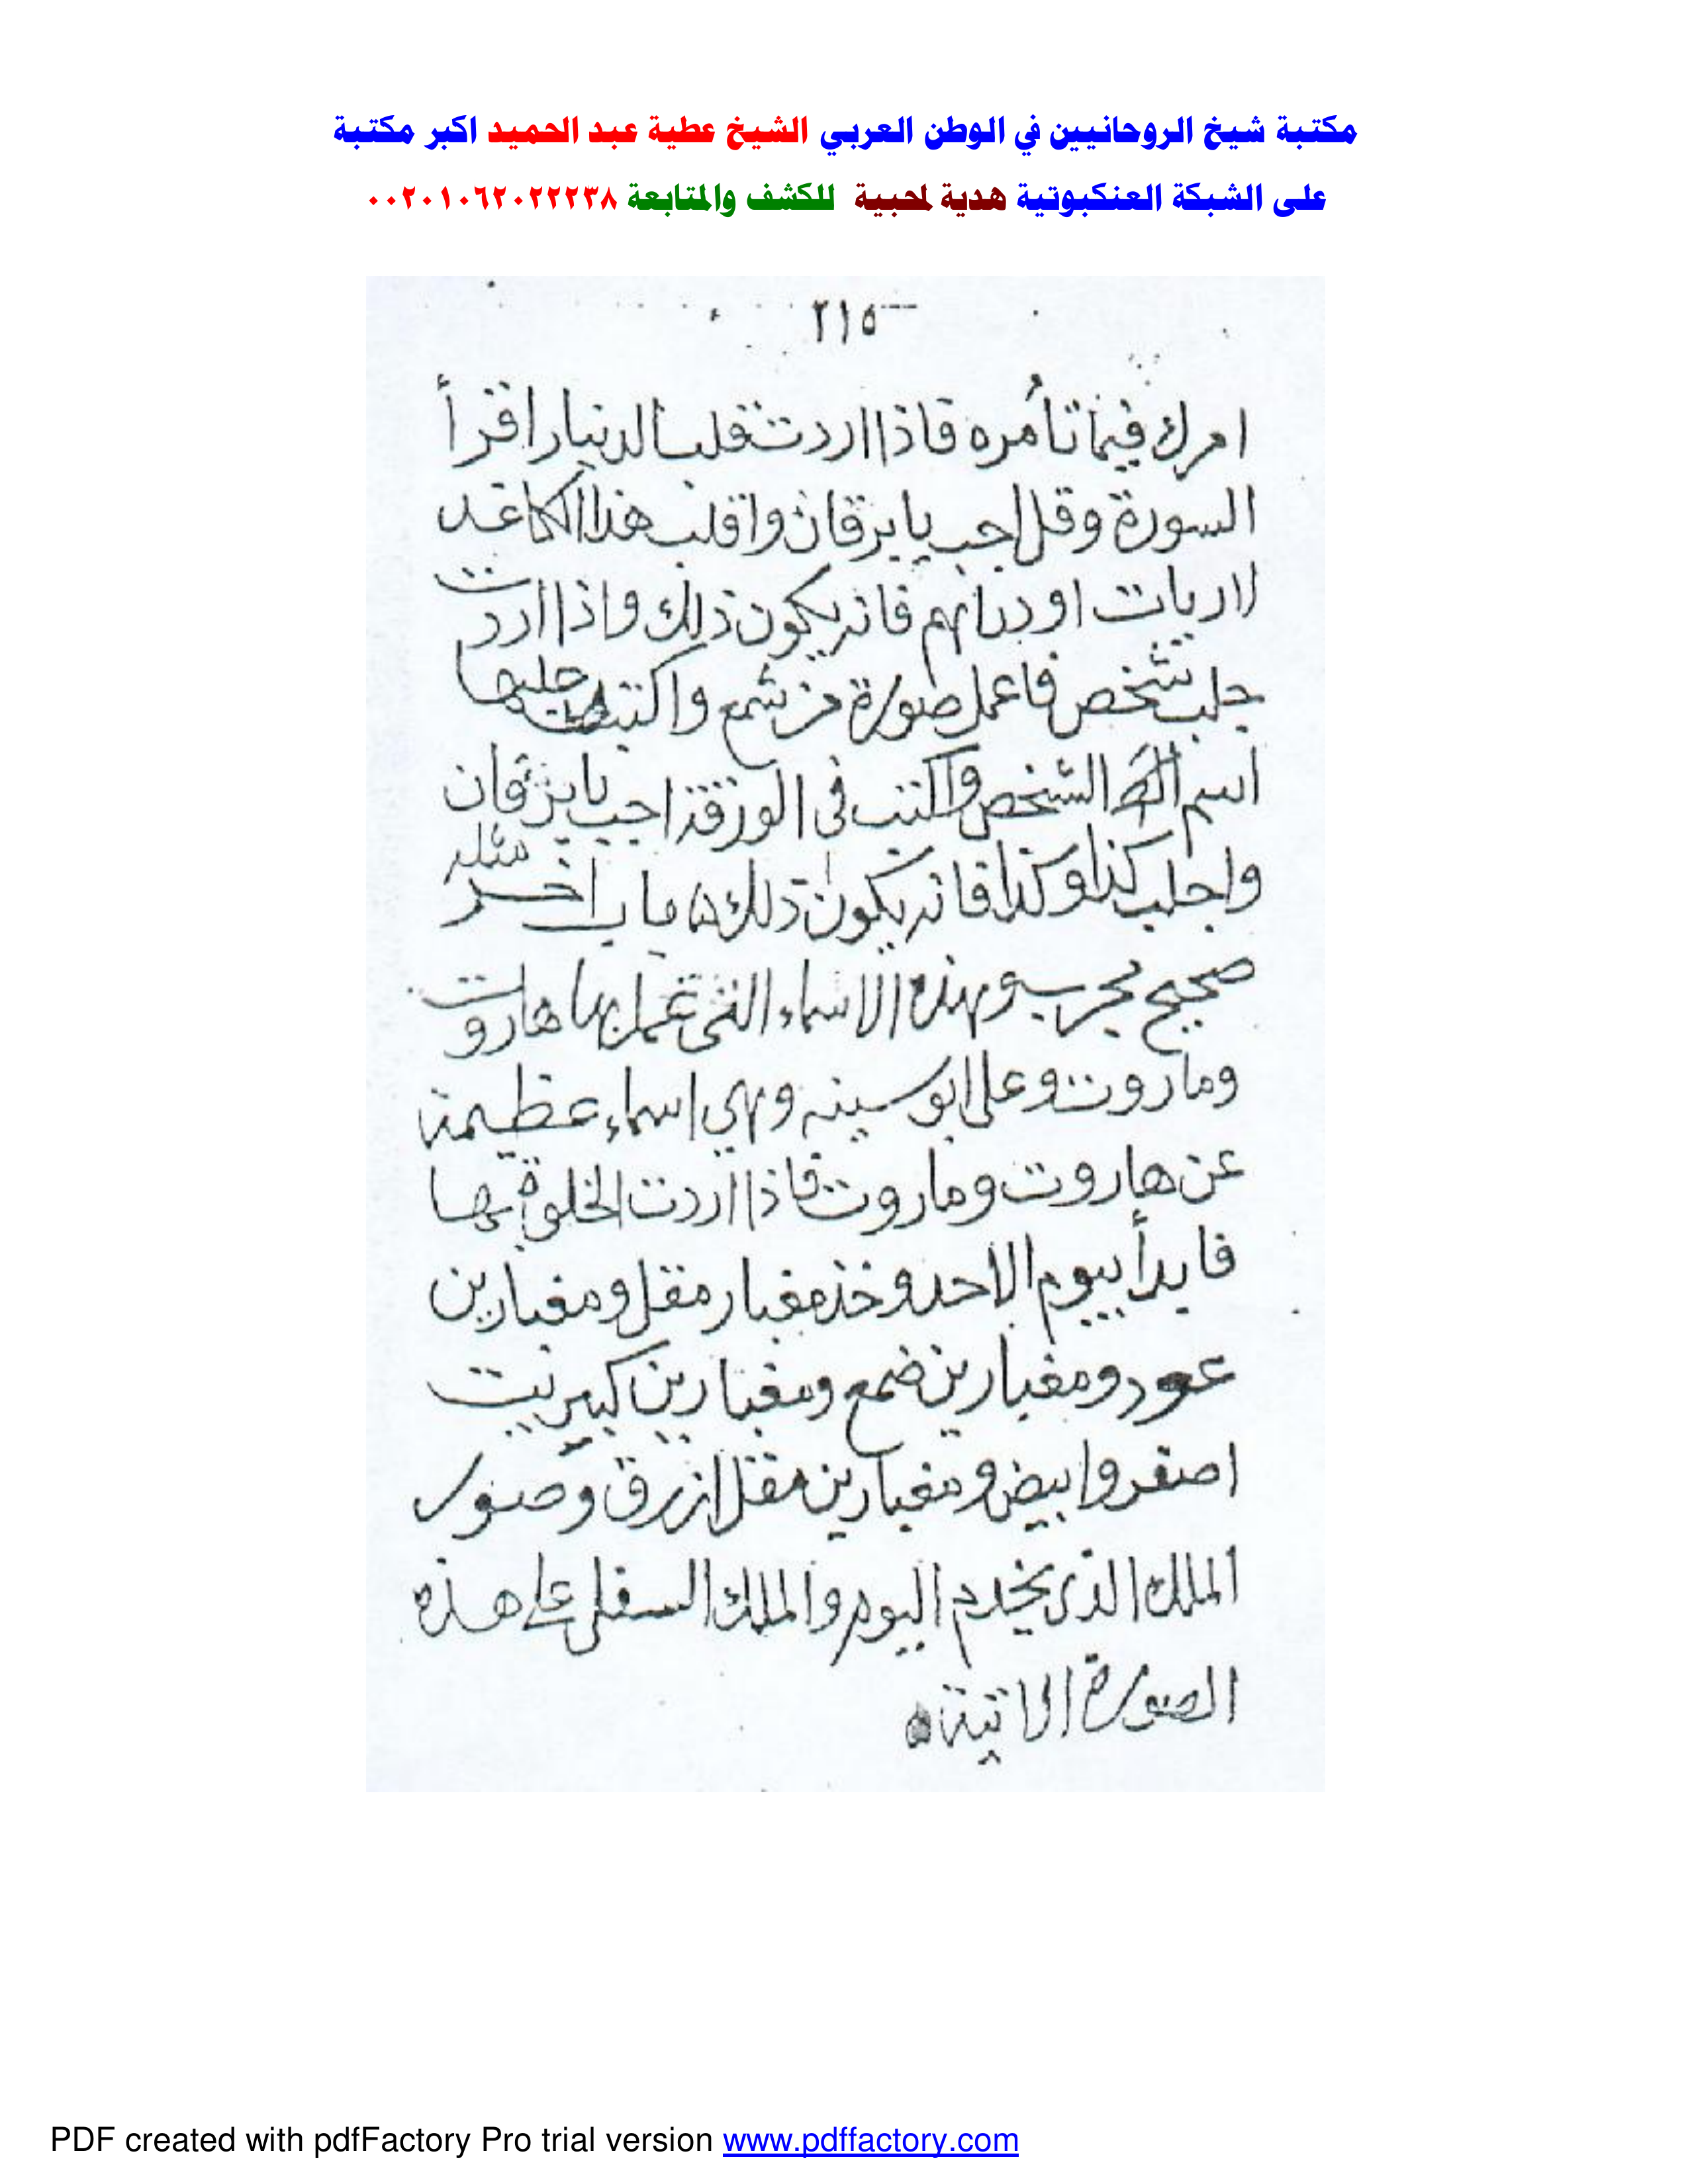 مكتبة شيخ الروحانيين في الوطن العربي الشيخ عطية عبد الحميد اكبر مكتبة
على الشبكة العنكبوتية هدية لمحبية للكشف والمتابعة ٠٠٢٠١٠٦٢٠٢٢٢٣٨
٢١٥
امرك فيما تأمره فاذا اردت قلب الدنيار اقرأ
السورة وقل اجب يا برقان واقلب هذا الكاغد
اوردراهم فانه يكون ذلك واذا اردت
جلب شخص فاعمل صورة من شمع واكتب
اسم الشخص واكتب فى الورقة اجب يا برقان
واجلب كذا وكذا فانه يكون ذلك ه باب اخر مثله
صحيح مجرب وبهذه الاسماء التى عمل بها هاروت
وماروت وعلى ابو سينه وهي اسماء عظيمة
عن هاروت وماروت فاذا اردت الخلوة بها
فابدأ بيوم الاحد وخذ مغبار مقل ومغبارين
عود ومغبارين ضمع ومغبارين كبيريت
اصفر وابيض ومغبارين مقل ازرق وصور
الملك الذى يخدم اليوم والملك السفلى على هذه
الصورة الاتية ه
PDF created with pdfFactory Pro trial version www.pdffactory.com